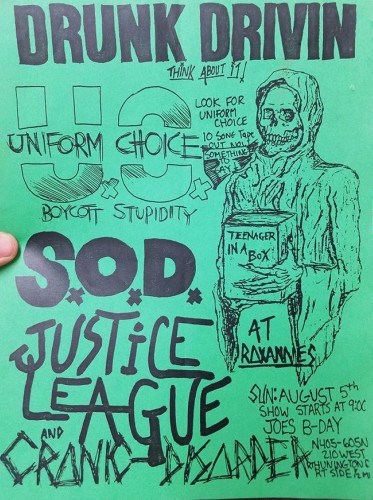 DRUNK DRIVIN
THINK ABOUT IT
U.S.
UNIFORM CHOICE
BOYCOTT STUPIDITY
LOOK FOR
UNIFORM
CHOICE
10 SONG TAPE
OUT NOW
SOMETHING
TO
SAVE
S.O.D.
TEENAGER
IN A
BOX
AT
ROXANNES
JUSTICE
LEAGUE
AND
CRONIC-DISORDER
SUN: AUGUST 5th
SHOW STARTS AT 9:00
JOES B-DAY
N405-605N
210 WEST
HUNINGTON
RT SIDE ½ MI